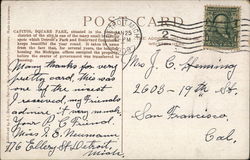 POST CARD
CAPITOL SQUARE PARK, situated in the
district of the city is one of the many small
spots which Detroit's Park and Boulevard
keeps beautiful the year round. It takes its name
from the fact that, for several years, the building
housing the Michigan offices occupied the
before the center of government was transferred to
Lansing.
JAN 25
2
Many thanks for very
pretty card, this was
one of the nicest
I received, my friends
admire it very much
Your P.C. Friend
Miss S. E. Neumann
776 Ellery St. Detroit,
Mich.
Mrs J. C. Heming
2603-19th St.
San Francisco
Cal.